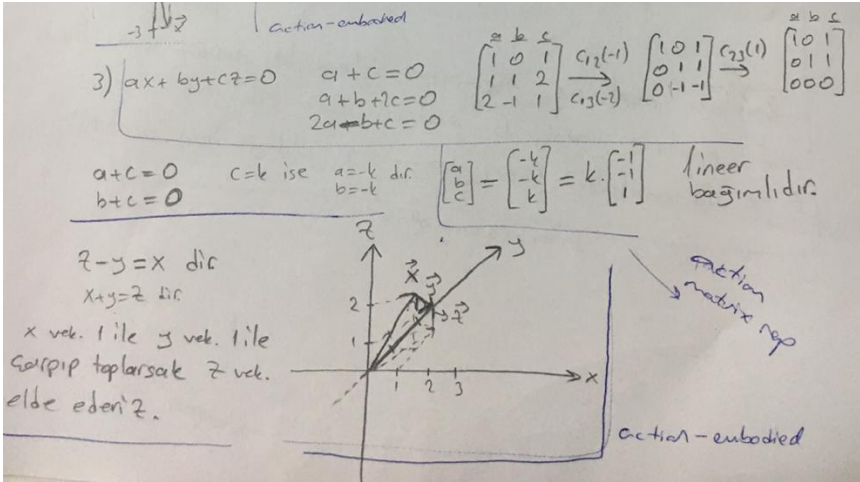 -3
x
action-embodied
3) ax + by + cz = 0
a + c = 0
a + b + 2c = 0
2a - b + c = 0
a b c
[1 0 1
1 1 2
2 -1 1]
C₁₂(-1)
C₁₃(-2)
[1 0 1
0 1 1
0 -1 -1]
C₂₃(1)
a b c
[1 0 1
0 1 1
0 0 0]
a + c = 0
b + c = 0
c = k ise a = -k dır.
b = -k
[a b c] = [-k -k k] = k. [-1 -1 1]
lineer
bağımlıdır.
z - y = x dir
x + y = z dir
x vek. 1 ile y vek. 1 ile
çarpıp toplarsak z vek.
elde ederiz.
z
y
x
2
1
1 2 3
x
y
z
action
matrix rep
action-embodied